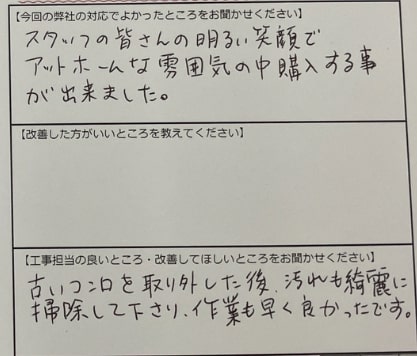 【今回の弊社の対応でよかったところをお聞かせください】
スタッフの皆さんの明るい笑顔で
アットホームな雰囲気の中購入する事
が出来ました。
【改善した方がいいところを教えてください】
【工事担当の良いところ・改善してほしいところをお聞かせください】
古いコンロを取り外した後、汚れも綺麗に
掃除して下さり、作業も早く良かったです。